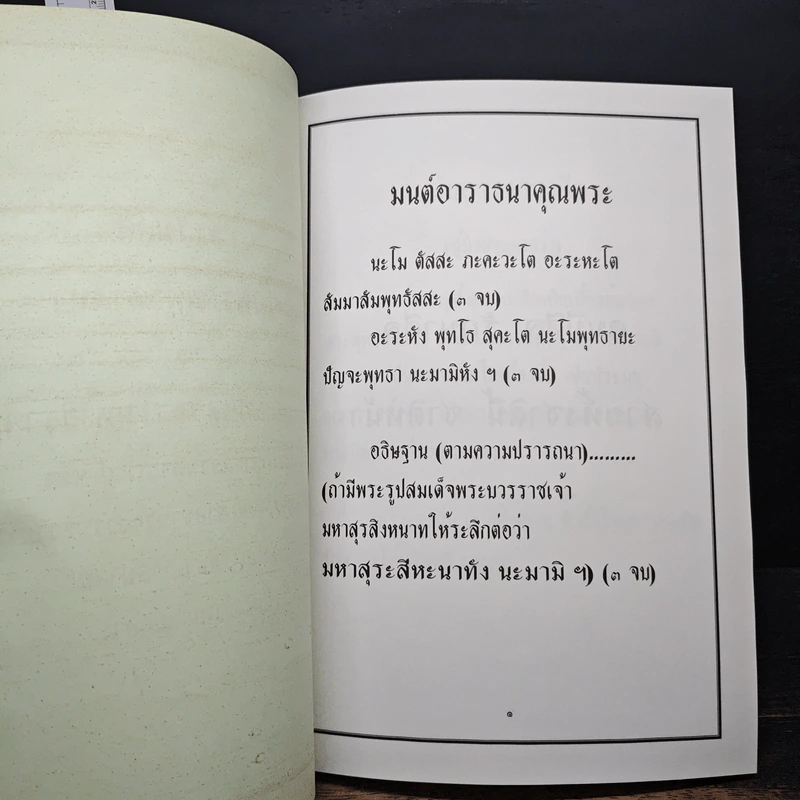 มนต์อาราธนาคุณพระ
นะโม ตัสสะ ภะคะวะโต อะระหะโต
สัมมาสัมพุทธัสสะ (๓ จบ)
อะระหัง พุทโธ สุคะโต นะโมพุทธายะ
ปัญจะพุทธา นะมามิหัง ฯ (๓ จบ)
อธิษฐาน (ตามความปรารถนา).........
(ถ้ามีพระรูปสมเด็จพระบวรราชเจ้า
มหาสุรสิงหนาทให้ระลึกต่อว่า
มหาสุระสีหะนาทัง นะมามิ ฯ) (๓ จบ)
๑